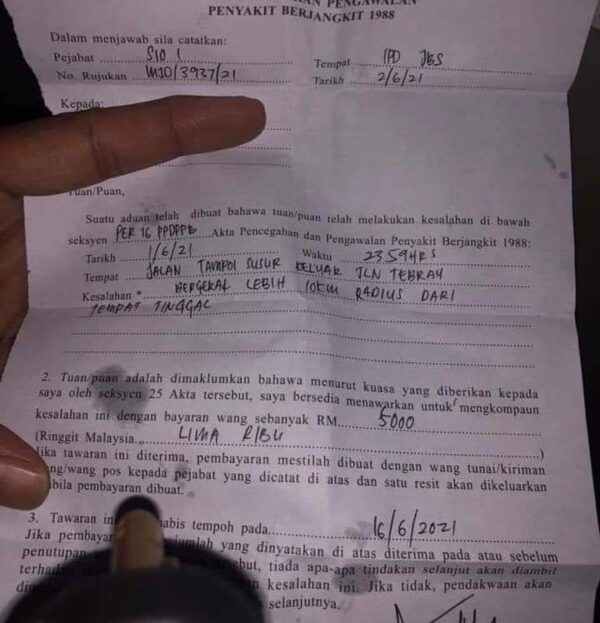 PENGAWALAN
PENYAKIT BERJANGKIT 1988
Dalam menjawab sila catatkan:
Pejabat SIO 1 Tempat IPD JBS
No. Rujukan MJD/3937/21 Tarikh 2/6/21
Kepada:
Tuan/Puan,
Suatu aduan telah dibuat bahawa tuan/puan telah melakukan kesalahan di bawah
seksyen PER 16 PPDPPB Akta Pencegahan dan Pengawalan Penyakit Berjangkit 1988:
Tarikh 1/6/21 Waktu 2359HRS
Tempat JALAN TAMPOI SUSUR KELUAR JLN TEBRAU
Kesalahan * BERGERAK LEBIH 10KM RADIUS DARI
TEMPAT TINGGAL
2. Tuan/puan adalah dimaklumkan bahawa menurut kuasa yang diberikan kepada
saya oleh seksyen 25 Akta tersebut, saya bersedia menawarkan untuk mengkompaun
kesalahan ini dengan bayaran wang sebanyak RM 5000
(Ringgit Malaysia LIMA RIBU )
Jika tawaran ini diterima, pembayaran mestilah dibuat dengan wang tunai/kiriman
wang/wang pos kepada pejabat yang dicatat di atas dan satu resit akan dikeluarkan
apabila pembayaran dibuat.
3. Tawaran ini habis tempoh pada 16/6/2021
Jika pembayaran jumlah yang dinyatakan di atas diterima pada atau sebelum
penutupan tersebut, tiada apa-apa tindakan selanjut akan diambil
terhadap kesalahan ini. Jika tidak, pendakwaan akan
selanjutnya.